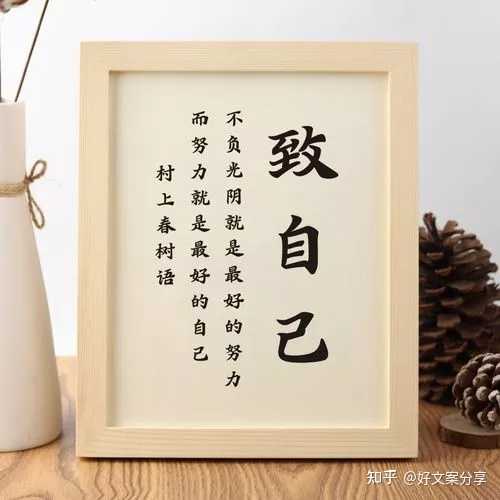 致自己
不负光阴就是最好的努力
而努力就是最好的自己
村上春树语
知乎 @好文案分享